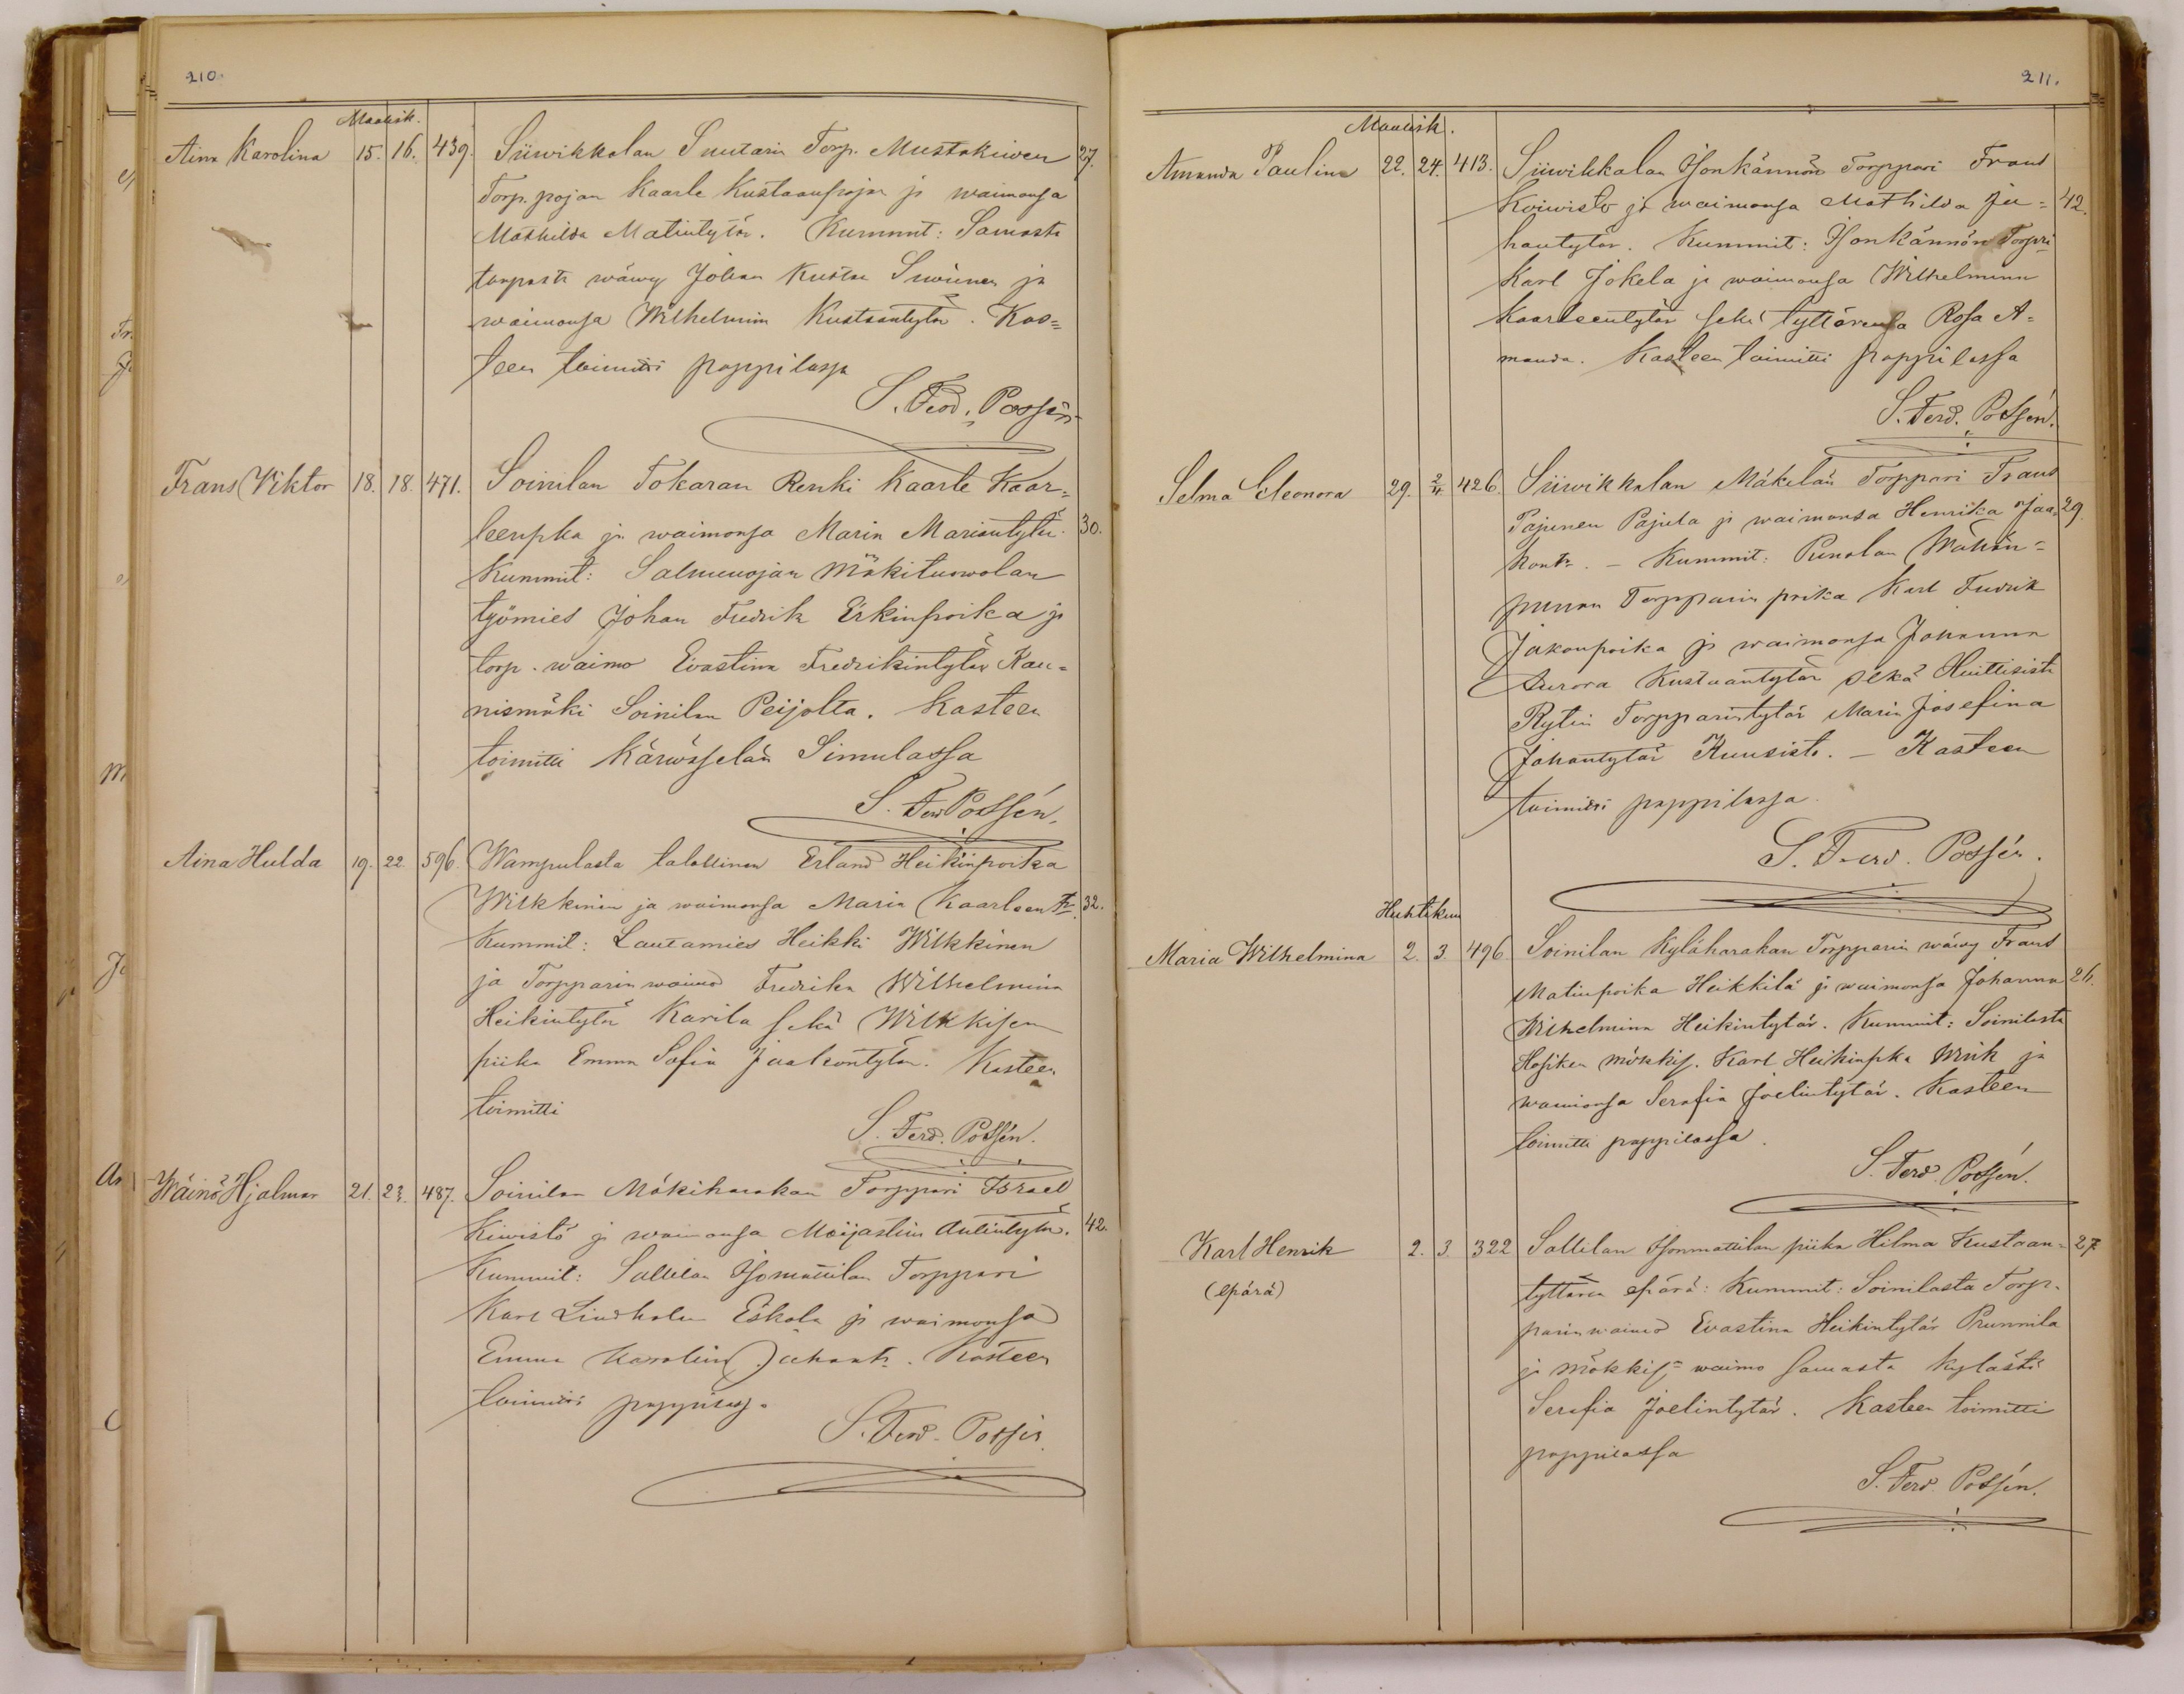 210.
Maalisk.
Aina Karolina 15. 16. 439. Siiwikkalan Suutarin Torp. Mustakiwen 27.
Torp. pojan Kaarle Kustaanpojan ja waimonsa
Mathilda Matintytär. Kummit: Samasta
torpasta wäwy Johan Kustaa Suominen ja
waimonsa Wilhelmina Kustaantytär. Kas=
teen toimitti pappilassa
S. Ferd. Possén
Frans Viktor 18. 18. 471. Soinilan Tokaran Renki Kaarle Kaar=
leenpka ja waimonsa Maria Mariantytär. 30.
Kummit: Salmenojan Mäkituowolan
työmies Johan Fredrik Erkinpoika ja
torp. waimo Evastina Fredrikintytär Kau=
nismäki Soinilan Peijolta. Kasteen
toimitti Karwasselän Simulassa
S. Ferd Possén.
Aina Hulda 19. 22 596. Wampulasta talollinen Erland Heikinpoika
Wilkkinen ja waimonsa Maria Kaarleentr. 32.
Kummit: Lautamies Heikki Wilkkinen
ja Torpparin waimo Fredrika Wilhelmina
Heikintytär Karila sekä Wilkkisen
piika Emma Sofia Jaakontytär. Kasteen
toimitti
S. Ferd. Possén.
Wäinö Hjalmar 21. 23. 487. Soinilan Mäkiharakan Torppari Israel
Kiwistö ja waimonsa Maijastina Antintytär. 42.
Kummit: Sallilan Isomattilan Torppari
Karl Lindholm Eskola ja waimonsa
Emma Karolina Juhantr. Kasteen
toimitti pappilassa
S. Ferd. Possén
211.
Maalisk.
Amanda Paulina 22. 24. 413. Siiwikkalan Isonkännön Torppari Frans
Koiwisto ja waimonsa Mathilda Ju= 42.
hantytär. Kummit: Isonkännön Torpri
Karl Jokela ja waimonsa Wilhelmina
Kaarleentytär sekä tyttärensä Rosa A=
manda. Kasteen toimitti pappilassa
S. Ferd. Possén.
Selma Eleonora 29. 2/4 426. Siiwikkalan Mäkelän Torppari Frans
Pajunen Pajula ja waimonsa Henrika Jaa= 29.
kontr. – Kummit: Punolan Wähän=
Torpparin poika Karl Fredrik
Jakonpoika ja waimonsa Johanna
Aurora Kustaantytär sekä Huittisista
Rytin Torpparintytär Maria Josefina
Johantytär Kuusisto. – Kasteen
toimitti pappilassa.
S. Ferd. Possén.
Huhtikuu
Maria Wilhelmina 2. 3. 496 Soinilan Kyläharakan Torpparin wäwy Frans
Matinpoika Heikkilä ja waimonsa Johanna 26.
Wilhelmina Heikintytär. Kummit: Soinilasta
mökkis. Karl Heikinpka Wirik ja
waimonsa Serafia Joelintytär. Kasteen
toimitti pappilassa.
S. Ferd. Possén.
Karl Henrik 2. 3. 322 Sallilan Isonmattilan piika Hilma Kustaan= 27
(äpärä) tyttären äpärä: Kummit: Soinilasta Torp=
parin waimo Evastina Heikintytär Prunnila
ja mökkis= waimo samasta kylästä
Serafia Joelintytär. Kasteen toimitti
pappilassa
S. Ferd. Possén.